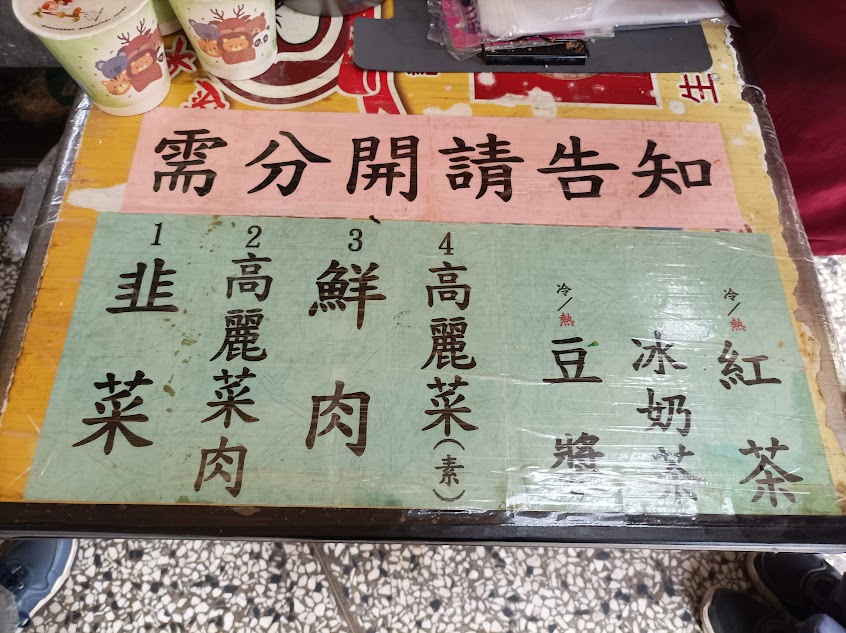 需分開請告知
1 韭菜
2 高麗菜肉
3 鮮肉
4 高麗菜(素)
冷/熱 豆漿
冰奶茶
冷/熱 紅茶
生